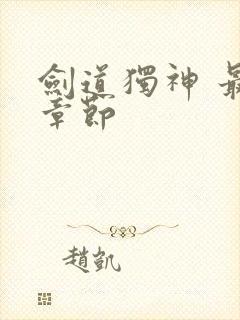 劍道獨神 最
章節
趙凱